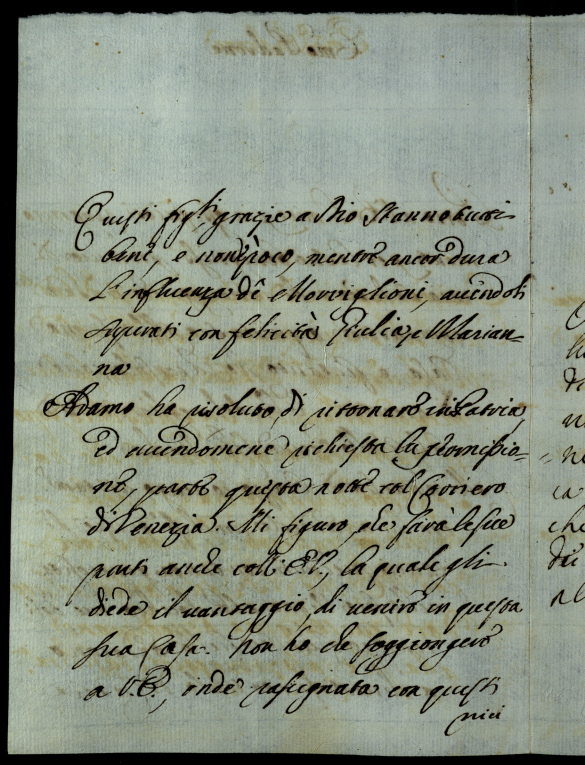 Questi figli, grazie a Dio stanno tutti
bene, e non è poco, mentre ancor dura
l'influenza dè Morviglioni, avendoli
superati con felicità Giulia, e Marian=
na
Adamo ha risoluto, di ritornare in Patria,
ed avendomene richiesta la permissio=
ne, parte questa notte col Corriero
di Venezia. Mi figuro, che farà le sue
parti anche coll' E.V., la quale gli
diede il vantaggio, di venire in questa
sua Casa. Non ho che soggiongere
a V.E., inde rasegnata con questi
miei